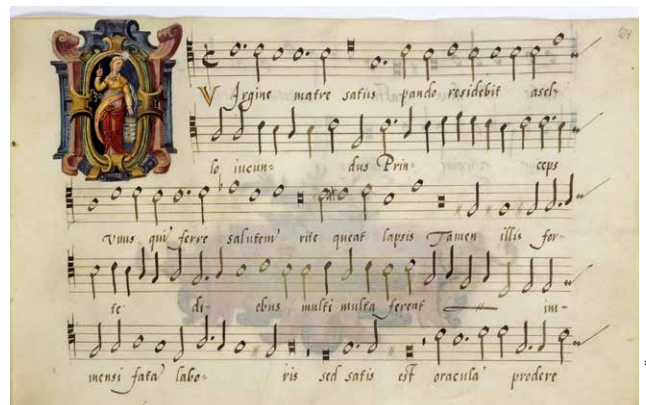 Virgine matre satus pando residebit asel-
lo iucun- dus Prin- ceps
vnus qui ferre salutem rite queat lapsis Tamen illis for-
te di- ebus multi multa ferent im-
mensi fata labo- ris sed satis est oracula prodere